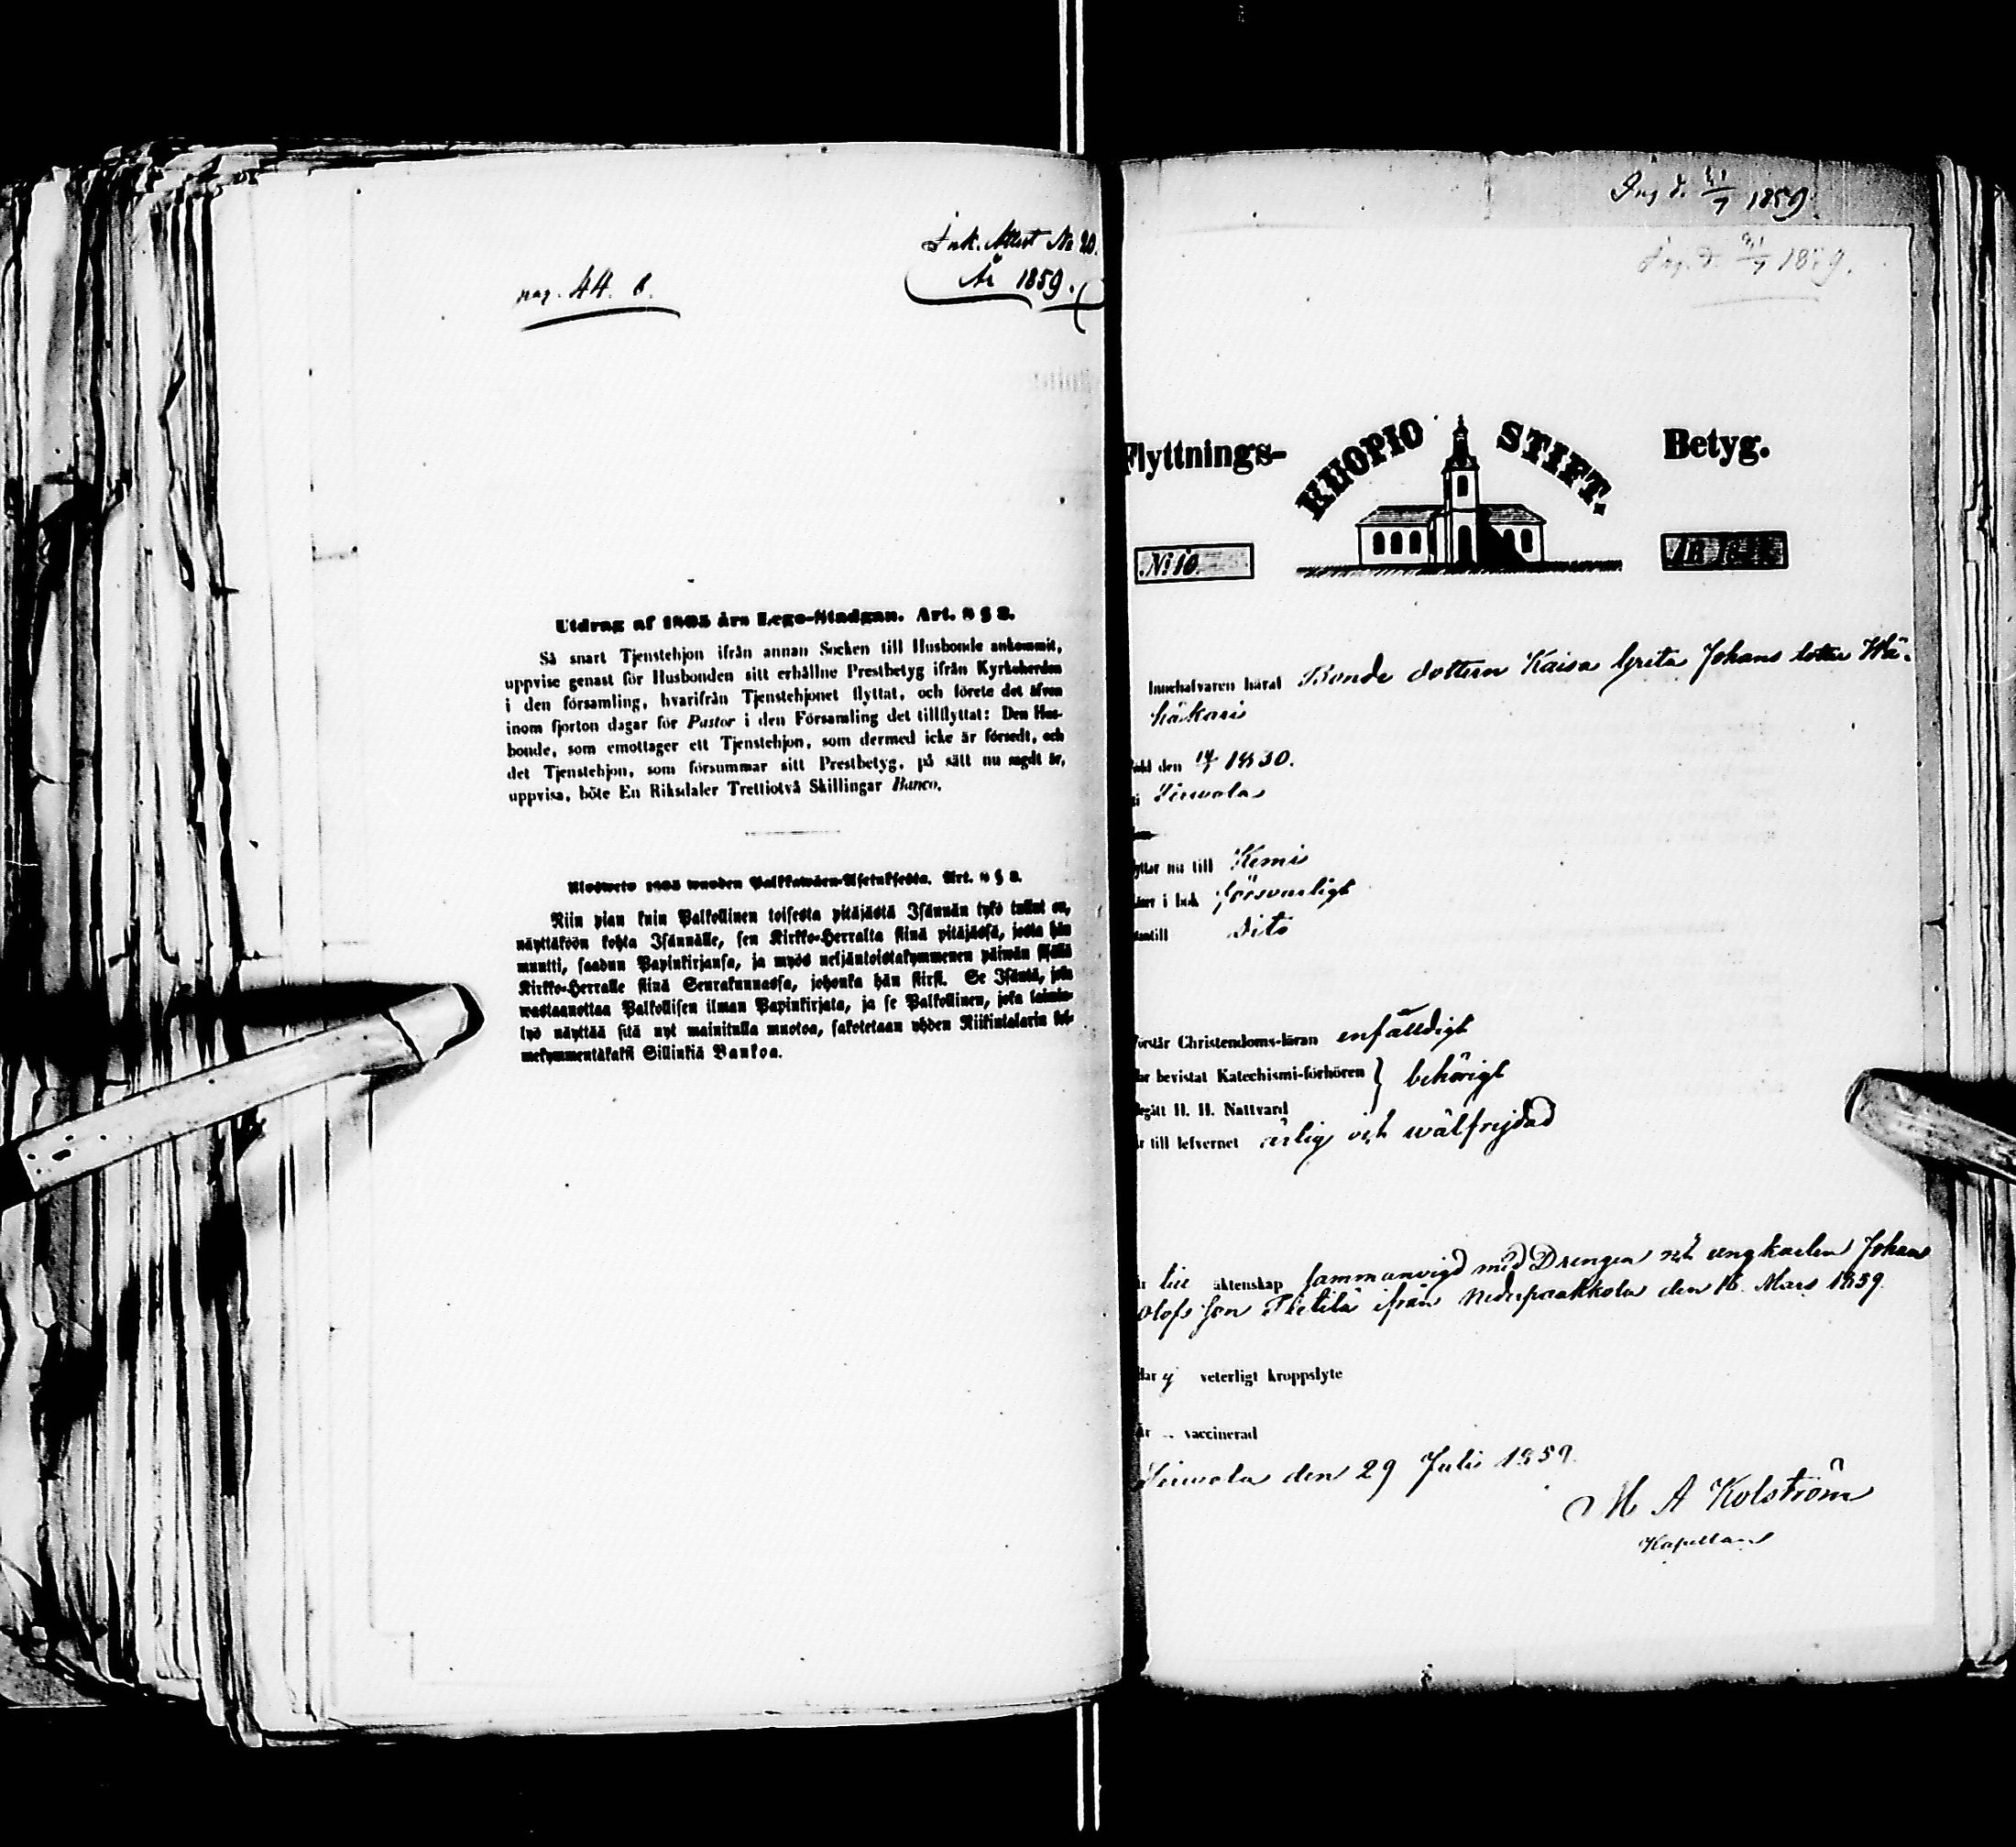 Ink. Attest No 20.
År 1859.
pag. 44. b.
Utdrag af 1805 års Lego-Stadgan. Art. 8 § 3.
Så snart Tjenstehjon ifrån annan Socken till Husbonde ankommit,
uppvise genast för Husbonden sitt erhållne Prestbetyg ifrån Kyrkoherden
i den församling, hvarifrån Tjenstehjonet flyttat, och förete det äfven
inom fjorton dagar för Pastor i den Församling det tillflyttat: Den Hus-
bonde, som emottager ett Tjenstehjon, som dermed icke är försedt, och
det Tjenstehjon, som försummar sitt Prestbetyg, på sätt nu sagdt är,
uppvisa, böte En Riksdaler Trettiotvå Skillingar Banco.
1805 wuoden Palkkawäen-Asetuksesta. Art. 8 § 3.
Niin pian kuin Palkollinen toisesta pitäjästä Isännän tykö tullut on,
näyttäköön kohta Isännälle, sen Kirkko-Herralta siinä pitäjässä, josta hän
muutti, saadun Papinkirjansa, ja myös neljäntoistakymmenen päiwän sisällä
Kirkko-Herralle siinä Seurakunnassa, johonka hän siirsi. Se Isäntä, joka
wastaanottaa Palkollisen ilman Papinkirjata, ja se Palkollinen, joka laimin-
lyö näyttää sitä nyt mainitulla muotoa, sakotetaan yhden Riikintalarin kol-
mekymmentäkaksi Sillinkiä Bankoa.
Ing d. 31/7 1859.
Ing. d. 31/7 1859.
Flyttnings-
KUOPIO STIFT.
Betyg.
No 10
Innehafvaren häraf Bonde dottern Kaisa Greta Johans dotter Wä-
häkari
den 1830.
i Simola
nu till Kemi
i bok försvarligt
dito
Förstår Christendoms-läran enfäldigt
bevistat Katechismi-förhören } behörigt
H. H. Nattvard
till lefvernet ärlig och wälfrejdad
till äktenskap sammanvigd med Drengen och ungkarlen Johan
Olofsson ifrån Nederpaakkola den 16 Mars 1859.
Har ej veterligt kroppslyte
Är vaccinerad
den 29 Juli 1859.
M A Kolström
Kapellan